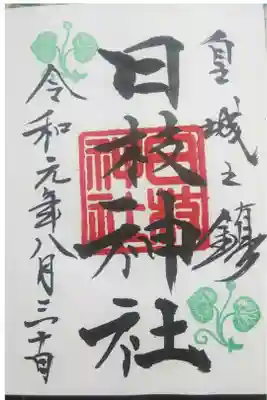 皇城之鎮
日枝神社
令和元年八月三十日